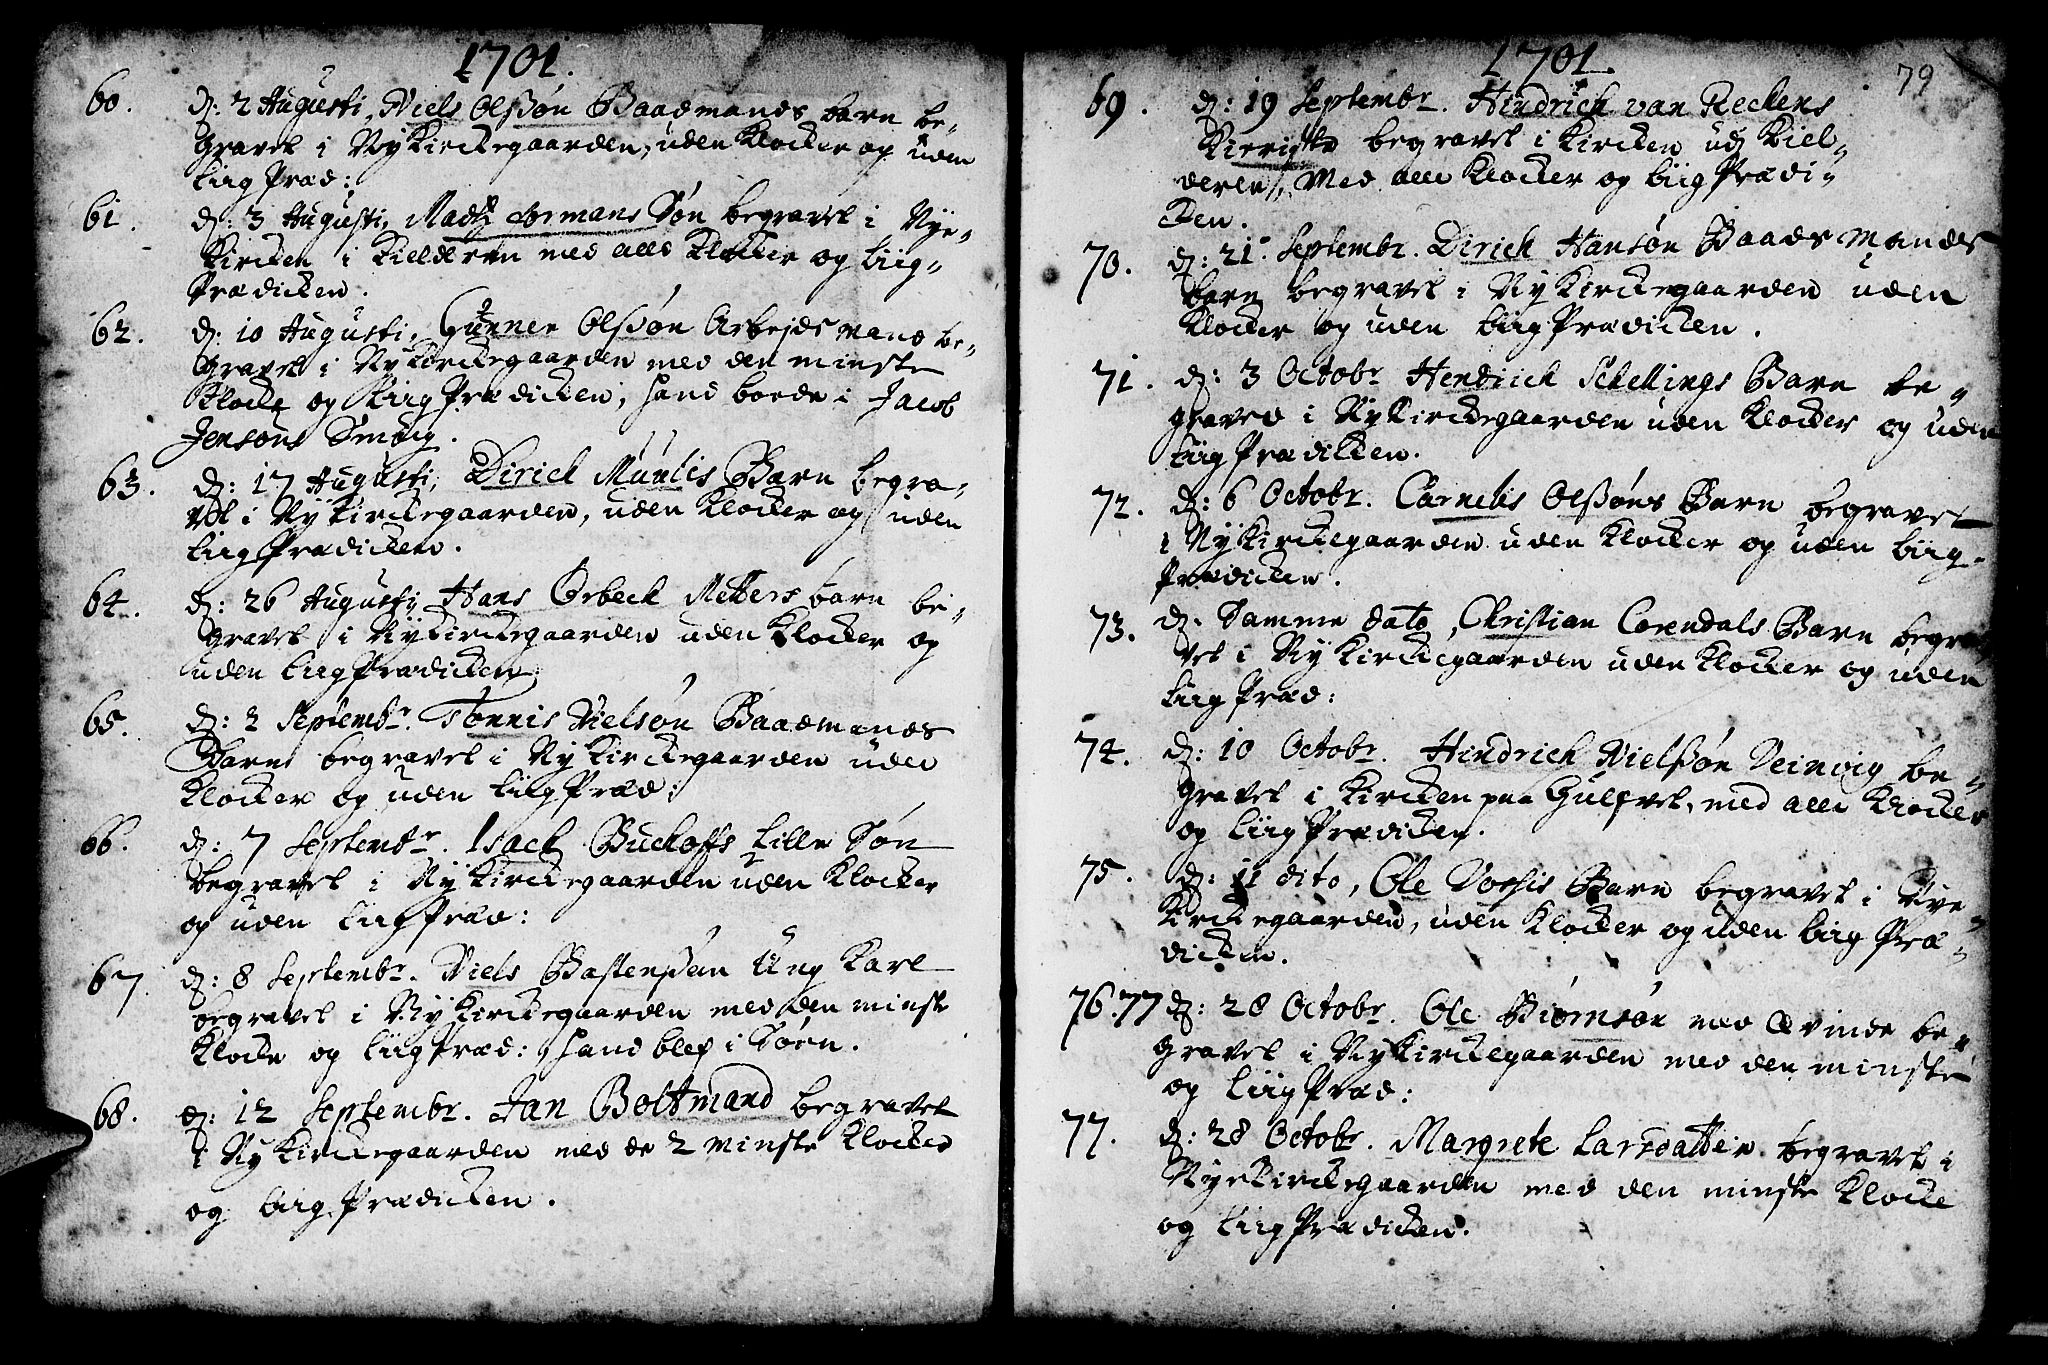 1701.
60. d: 2 Augusti, Niels Olßøn Baadmands barn be-
gravet i Nykirckegaarden, uden Klocker og uden
Liig Præd:
61. d: 3 Augusti, Mads Sormans Søn begravet i Nye-
kircken i Kielderen med alle Klocker og Liig-
Prædicken.
62. d: 10 Augusti, Gunner Olßøn Arbejdsmand be-
gravet i Nykirckegaarden med den minste
Klocke og Liig Prædicken, hand boede i Jacob
Jensøns Smøig.
63. d: 17 Augusti, Dirich Muulis Barn begra-
vet i Nykirckegaarden, uden Klocker og uden
Liig Prædicken.
64. d: 26 Augusti Hans Orbeck Metters barn be-
gravet i Nykirckegaarden uden Klocker og
uden Liig Prædicken
65. d: 2 Septembr. Tønnis Nielsøn Baadmands
Barn begravet i Nykirckegaarden uden
Klocker og uden Liig Præd:
66. d: 7 Septembr. Isach Buckoffs Lille Søn
begravet i Nykirckegaarden uden Klocker
og uden Liig Præd:
67. d: 8 Septembr. Niels Bastenßøn Ung Karl
begravet i Nykirckegaarden med den minste
Klocke og Liig Præd: hand blef i Søen.
68. d: 12 Septembr. Jan Boltmand begravet
i Nykirckegaarden med de 2 minste Klocker
og Liig Prædicken.
1701.
79
69. d: 19 Septembr. Hindrich van Reckens
begravet i Kircken udj Kiel-
deren, Med alle Klocker og Liig Prædi-
cken.
70. d: 21 Septembr. Dirich Hansøn Baadsmands
barn begravet i Nykirckegaarden uden
Klocker og uden Liig Prædicken.
71. d: 3 Octobr Hendrich Schellings Barn be-
graved i Nykirckegaarden uden Klocker og uden
Liig Prædicken.
72. d: 6 Octobr. Cornelis Olßøns Barn begravet
i Nykirckegaarden uden Klocker og uden Liig-
Prædicken.
73. d. Samme dato, Christian Corendals Barn begra-
vet i Nykirckegaarden uden Klocker og uden
Liig Præd:
74. d: 10 Octobr. Hindrich Nielßøn Veinvig be-
gravet i Kircken paa Gulfvet, med alle Klocker
og Liig Prædicken.
75. d: 11 dito, Ole Barn begravet i Nye-
Kirckegaarden, uden Klocker og uden Liig Præ-
dicken.
76.77 d: 28 Octobr. Ole Biørnsøn med Qvinde be-
gravet i Nykirckegaarden med den minste
og Liig Præd:
77. d: 28 Octobr. Margrete Larsdatter begravet i
Nyekirckegaarden med den minste Klocke
og Liig Prædicken.